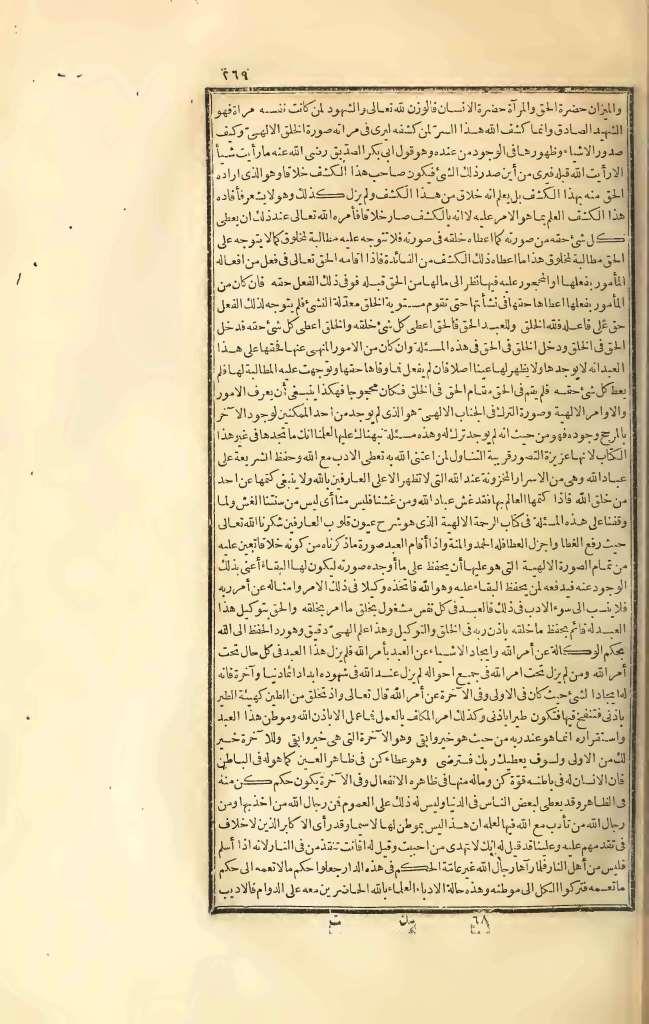 ٢٦٩
والميزان حضرة الحق والمرآة حضرة الانسان فالوزن لله تعالى والشهود لمن كانت نفسه مرآة فهو
الشهيد الصادق وانما كشف الله هذا السر لمن كشفه ليرى فى مرآته صورة الخلق الالهى وكيف
صدور الاشياء وظهورها فى الوجود من عنده وهو قول ابى بكر الصديق رضى الله عنه ما رأيت شيأ
الا رأيت الله قبله فيرى من أين صدر ذلك الشئ فيكون صاحب هذا الكشف خلاقا وهو الذى اراده
الحق منه بهذا الكشف بل يعلم انه خلاق من هذا الكشف ولم يزل كذلك وهو لا يشعر فأفاده
هذا الكشف العلم بما هو الامر عليه لا انه بالكشف صار خلاقا فأمره الله تعالى عند ذلك ان يعطى
كل شئ حقه من صورته كما اعطاه خلقه فى صورته فلا تتوجه عليه مطالبة لمخلوق كما لا يتوجه على
الحق مطالبة لمخلوق هذا ما اعطاه ذلك الكشف من الفائدة فاذا اقامه الحق تعالى فى فعل من افعاله
المأمور بفعلها او المحجور عليه فيها نظر الى ما لها من الحق قبله فوفى ذلك الفعل حقه فان كان من
المأمور بفعلها اعطاها حقها فى نشأتها حتى تقوم مستوية الخلق معدلة النشئ فلم يتوجه لذلك الفعل
حق على فاعله فلله الخلق وللعبد الحق فالحق اعطى كل شئ خلقه والخلق اعطى كل شئ حقه فدخل
الحق فى الخلق ودخل الخلق فى الحق فى هذه المسئلة وان كان من الامور المنهى عنها فحقها على هذا
العبد انه لا يوجدها ولا يظهر لها عينا اصلا فان لم يفعل فما وفاها حقها وتوجهت عليه المطالبة لها فلم
يعط كل شئ حقه فلم يقم فى الحق مقام الحق فى الخلق فكان محجوجا فهكذا ينبغى أن يعرف الامور
والاوامر الالهية وصورة الترك فى الجناب الالهى هو الذى لم يوجد من احد الممكنين لوجود الآخر
بالمرجح وجوده فهو من حيث انه لم يوجد ترك له وهذه مسئلة نبهناك عليها لعلمنا انك ما تجدها فى غير هذا
الكتاب لانها عزيزة التصور قريبة التناول لمن اعتنى الله به تعطى الادب مع الله وحفظ الشريعة على
عباد الله وهى من الاسرار المخزونة عند الله التى لا تظهر الا على العارفين بالله ولا ينبغى كتمها عن احد
من خلق الله فاذا كتمها العالم بها فقد غش عباد الله ومن غشنا فليس منا أى ليس من سنتنا الغش ولما
وقفنا على هذه المسئلة فى كتاب الرحمة الالهية الذى هو شرح عيون قلوب العارفين شكرنا الله تعالى
حيث رفع الغطا واجزل العطا فله الحمد والمنة واذا أقام العبد صورة ما ذكرناه من كونه خلاقا تعين عليه
من تمام الصورة الالهية التى هو عليها أن يحفظ على ما أوجده صورته ليكون لها البقاء أعنى بذلك
الوجود عنه فيدفعه لمن يحفظ البقاء عليه وهو الله فاتخذه وكيلا فى ذلك الامر وامثاله عن أمر ربه
فلا ينسب الى سوء الادب فى ذلك فالعبد فى كل نفس مشغول بخلق ما امر بخلقه والحق بتوكيل هذا
العبد له قائم بحفظ ما خلقه باذن ربه فى الخلق والتوكيل وهذا علم الهى دقيق وهو رد الحفظ الى الله
بحكم الوكالة عن أمر الله وايجاد الاشياء عن العبد بأمر الله فلم يزل هذا العبد فى كل حال تحت
أمر الله ومن لم يزل تحت امر الله فى جميع احواله لم يزل عند الله فى شهوده ابدا دائما دنيا وآخرة فانه
له ايجاد الشئ حيث كان فى الاولى وفى الآخرة عن أمر الله قال تعالى واذ تخلق من الطين كهيئة الطير
باذنى فتنفخ فيها فتكون طيرا باذنى وكذلك امر المكلف بالعمل فما عمل الا باذن الله وموطن هذا العبد
واستقراره انما هو عند ربه من حيث هو خير وابقى وهو الآخرة التى هى خير وابقى وللآخرة خير
لك من الاولى ولسوف يعطيك ربك فترضى وهو عطاء كن فى ظاهر العين كما هو له فى الباطن
فان الانسان له فى باطنه قوة كن وما له منها فى ظاهره الا الانفعال وفى الآخرة يكون حكم كن منه
فى الظاهر وقد يعطى لبعض الناس فى الدنيا وليس له ذلك على العموم فمن رجال الله من اخذ بها ومن
رجال الله من تأدب مع الله فيها لعلمه ان هذا ليس بموطن لها لا سيما وقد رأى الاكابر الذين لا خلاف
فى تقدمهم عليه وعلينا قد قيل له انك لا تهدى من احببت وقيل له افانت تنقذ من فى النار لانه اذا أسلم
فليس من أهل النار فلما رآها رجال الله غير عامة الحكم فى هذه الدار جعلوا حكم ما لا تعمه الى حكم
ما تعمه فتركوا الكل الى موطنه وهذه حالة الادباء العلماء بالله الحاضرين معه على الدوام فالاديب
٦٨ ت